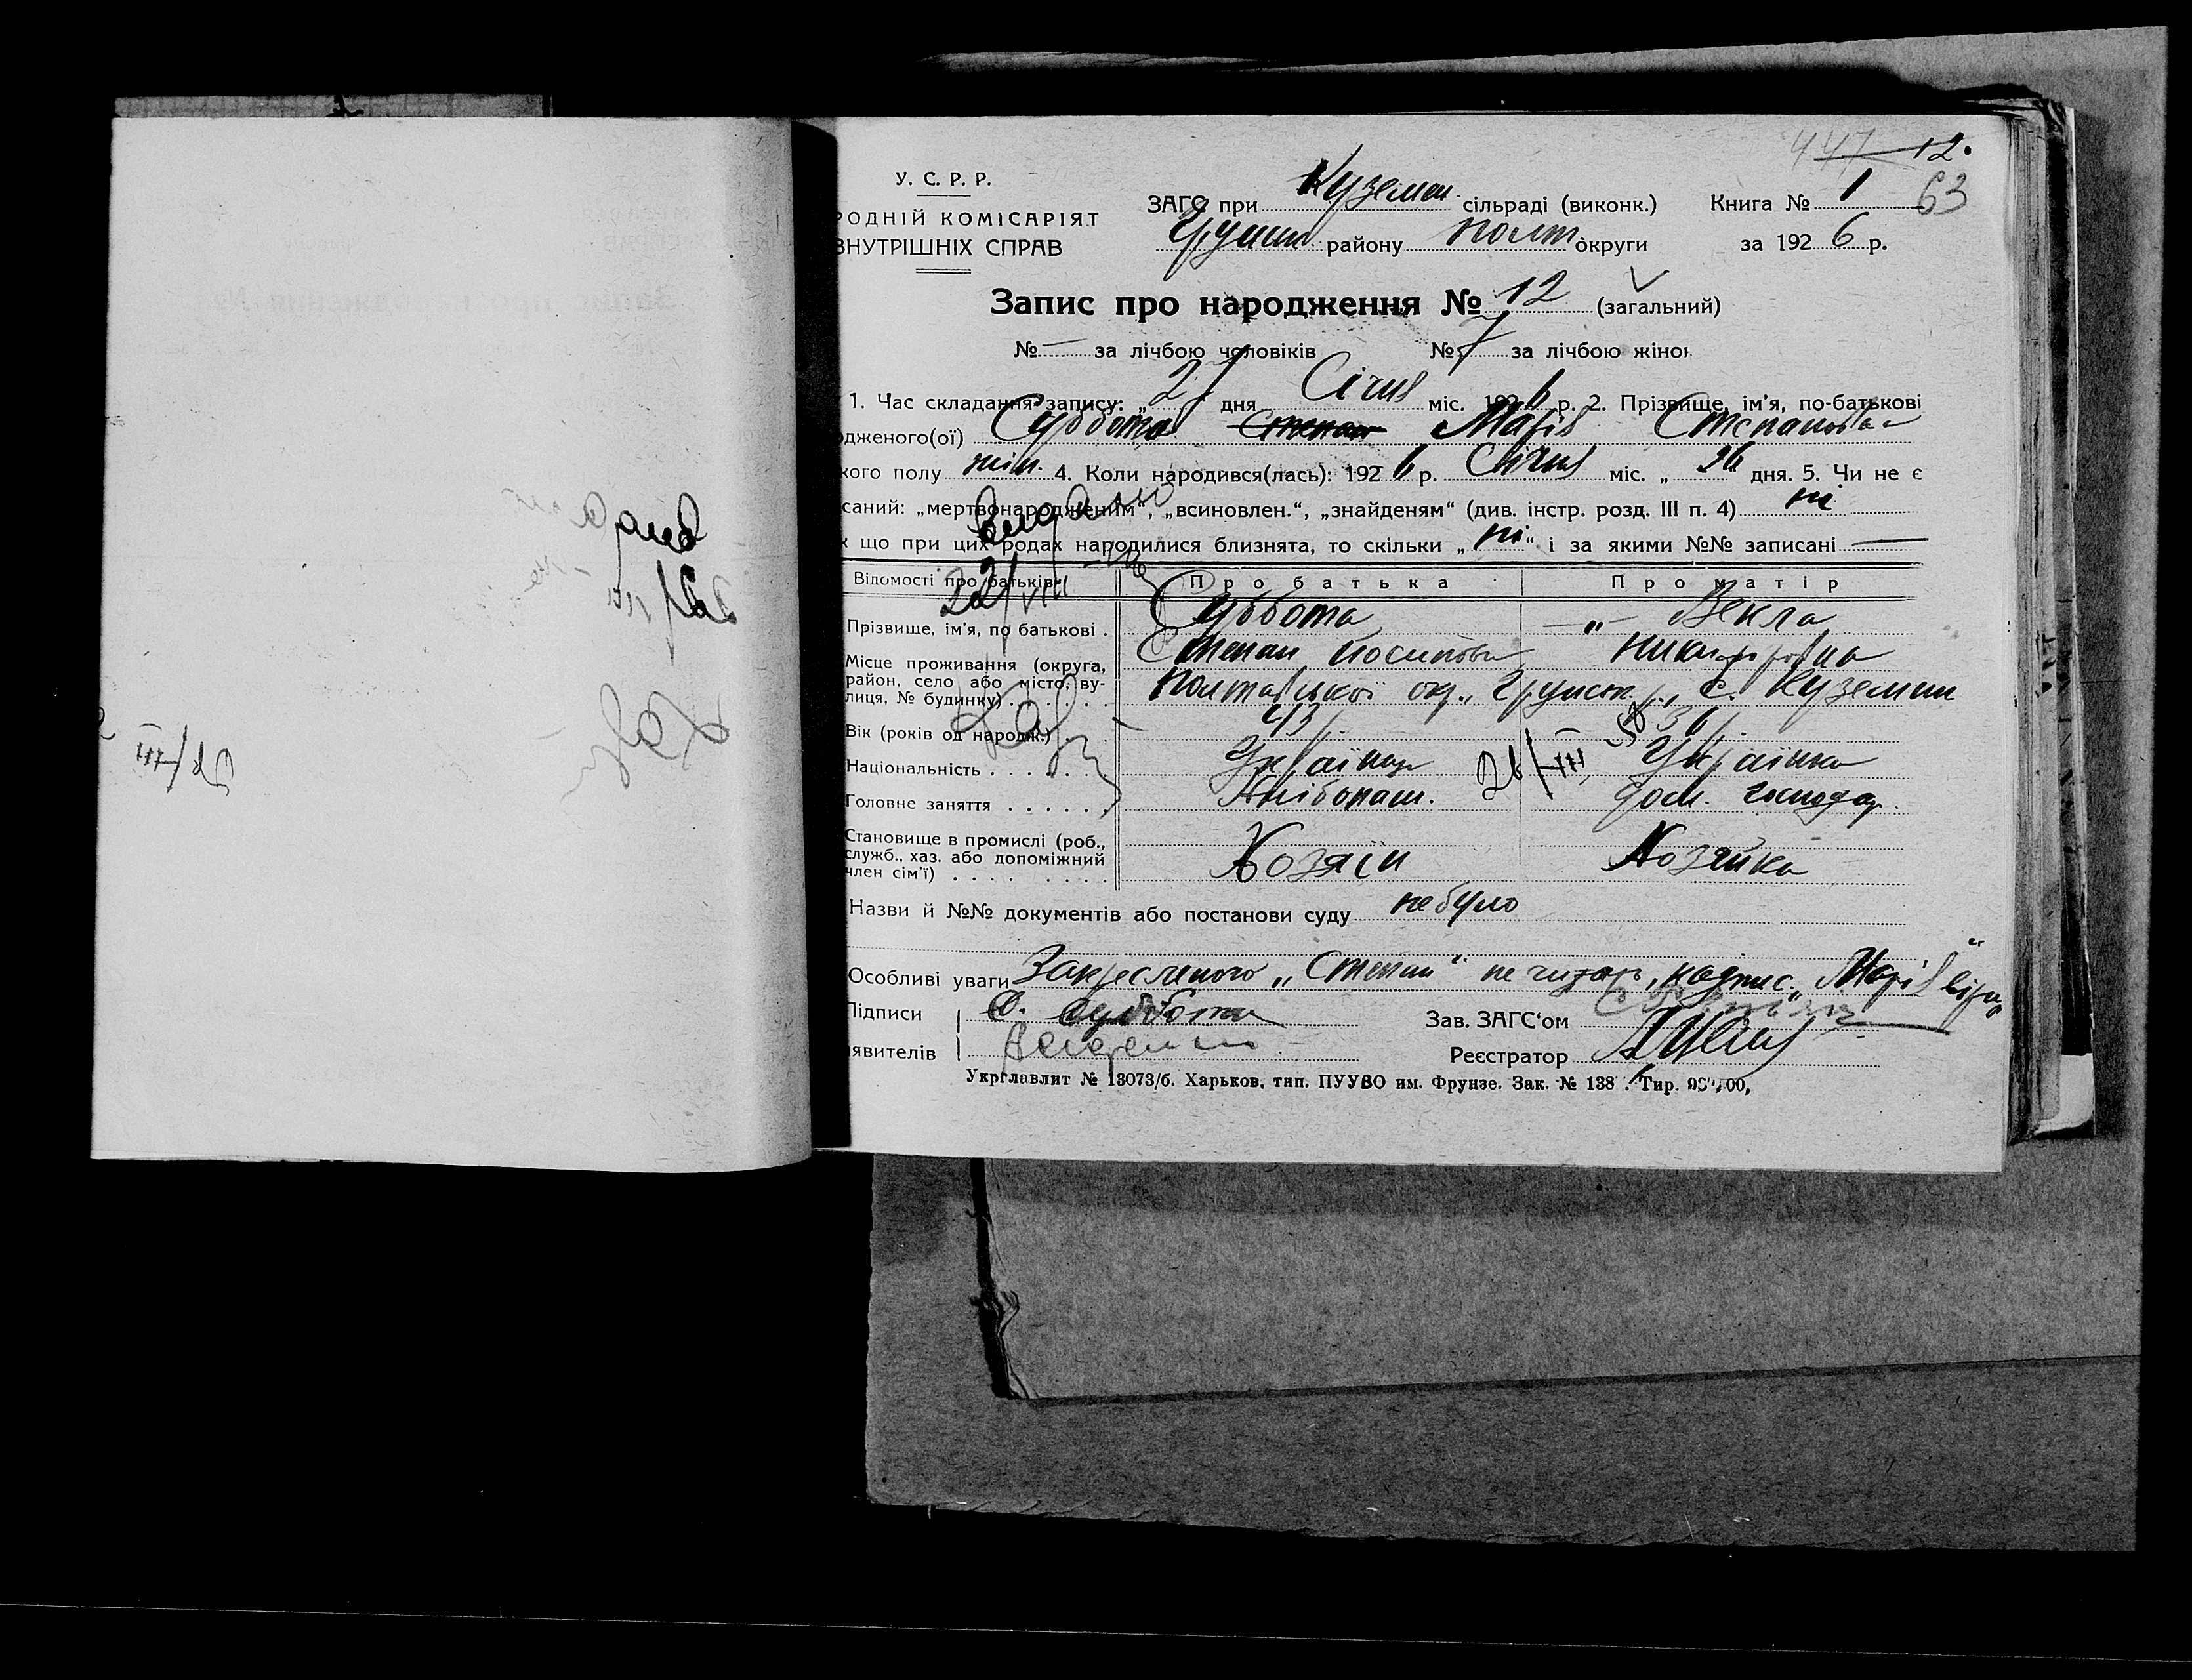 447 12.
63
У. С. Р. Р.
РОДНІЙ КОМІСАРІЯТ
ВНУТРІШНІХ СПРАВ
ЗАГС при Куземен. сільраді (виконк.) Книга № 1
Грунськ району Полт округи за 1926 р.
Запис про народження № 12 (загальний)
№ — за лічбою чоловіків № 7 за лічбою жінок
1. Час складання запису: „27 дня Січня міс. 1926 р. 2. Прізвище, ім'я, по-батькові
дженого(ої) Суббота Степан Марія Степановна
кого полу жін. 4. Коли народився(лась): 1926 р. Січня міс. „26 дня. 5. Чи не є
саний: „мертвонародженим“, „всиновлен.“, „знайденям“ (див. інстр. розд. III п. 4) ні
що при цих родах народилися близнята, то скільки „ні“ і за якими №№ записані —
Відомості про батьків Про батька Про матір
22/VIII
Прізвище, ім'я, по батькові . Суббота —„— Векла
Степан Йосипови Никифоровна
Місце проживання (округа, район, село або місто, вулиця, № будинку) Полтавської окр., Грунськ. р., с. Куземин
Вік (років од народж.) 43 36
Національність Українец Українка
26/III 50
Головне заняття Хлібопаш. Дом. господар.
Становище в промислі (роб., служб., хаз. або допоміжний член сім'ї) Хозяїн Хозяйка
Назви й №№ документів або постанови суду не було
Особливі уваги Закресленого „Степан“ не читать, надпис. „Марія“ вірно
Підписи С. Суббота Зав. ЗАГС'ом
явителів Реєстратор
Укрглавлит № 13073/б. Харьков, тип. ПУУВО им. Фрунзе. Зак. № 138 . Тир.